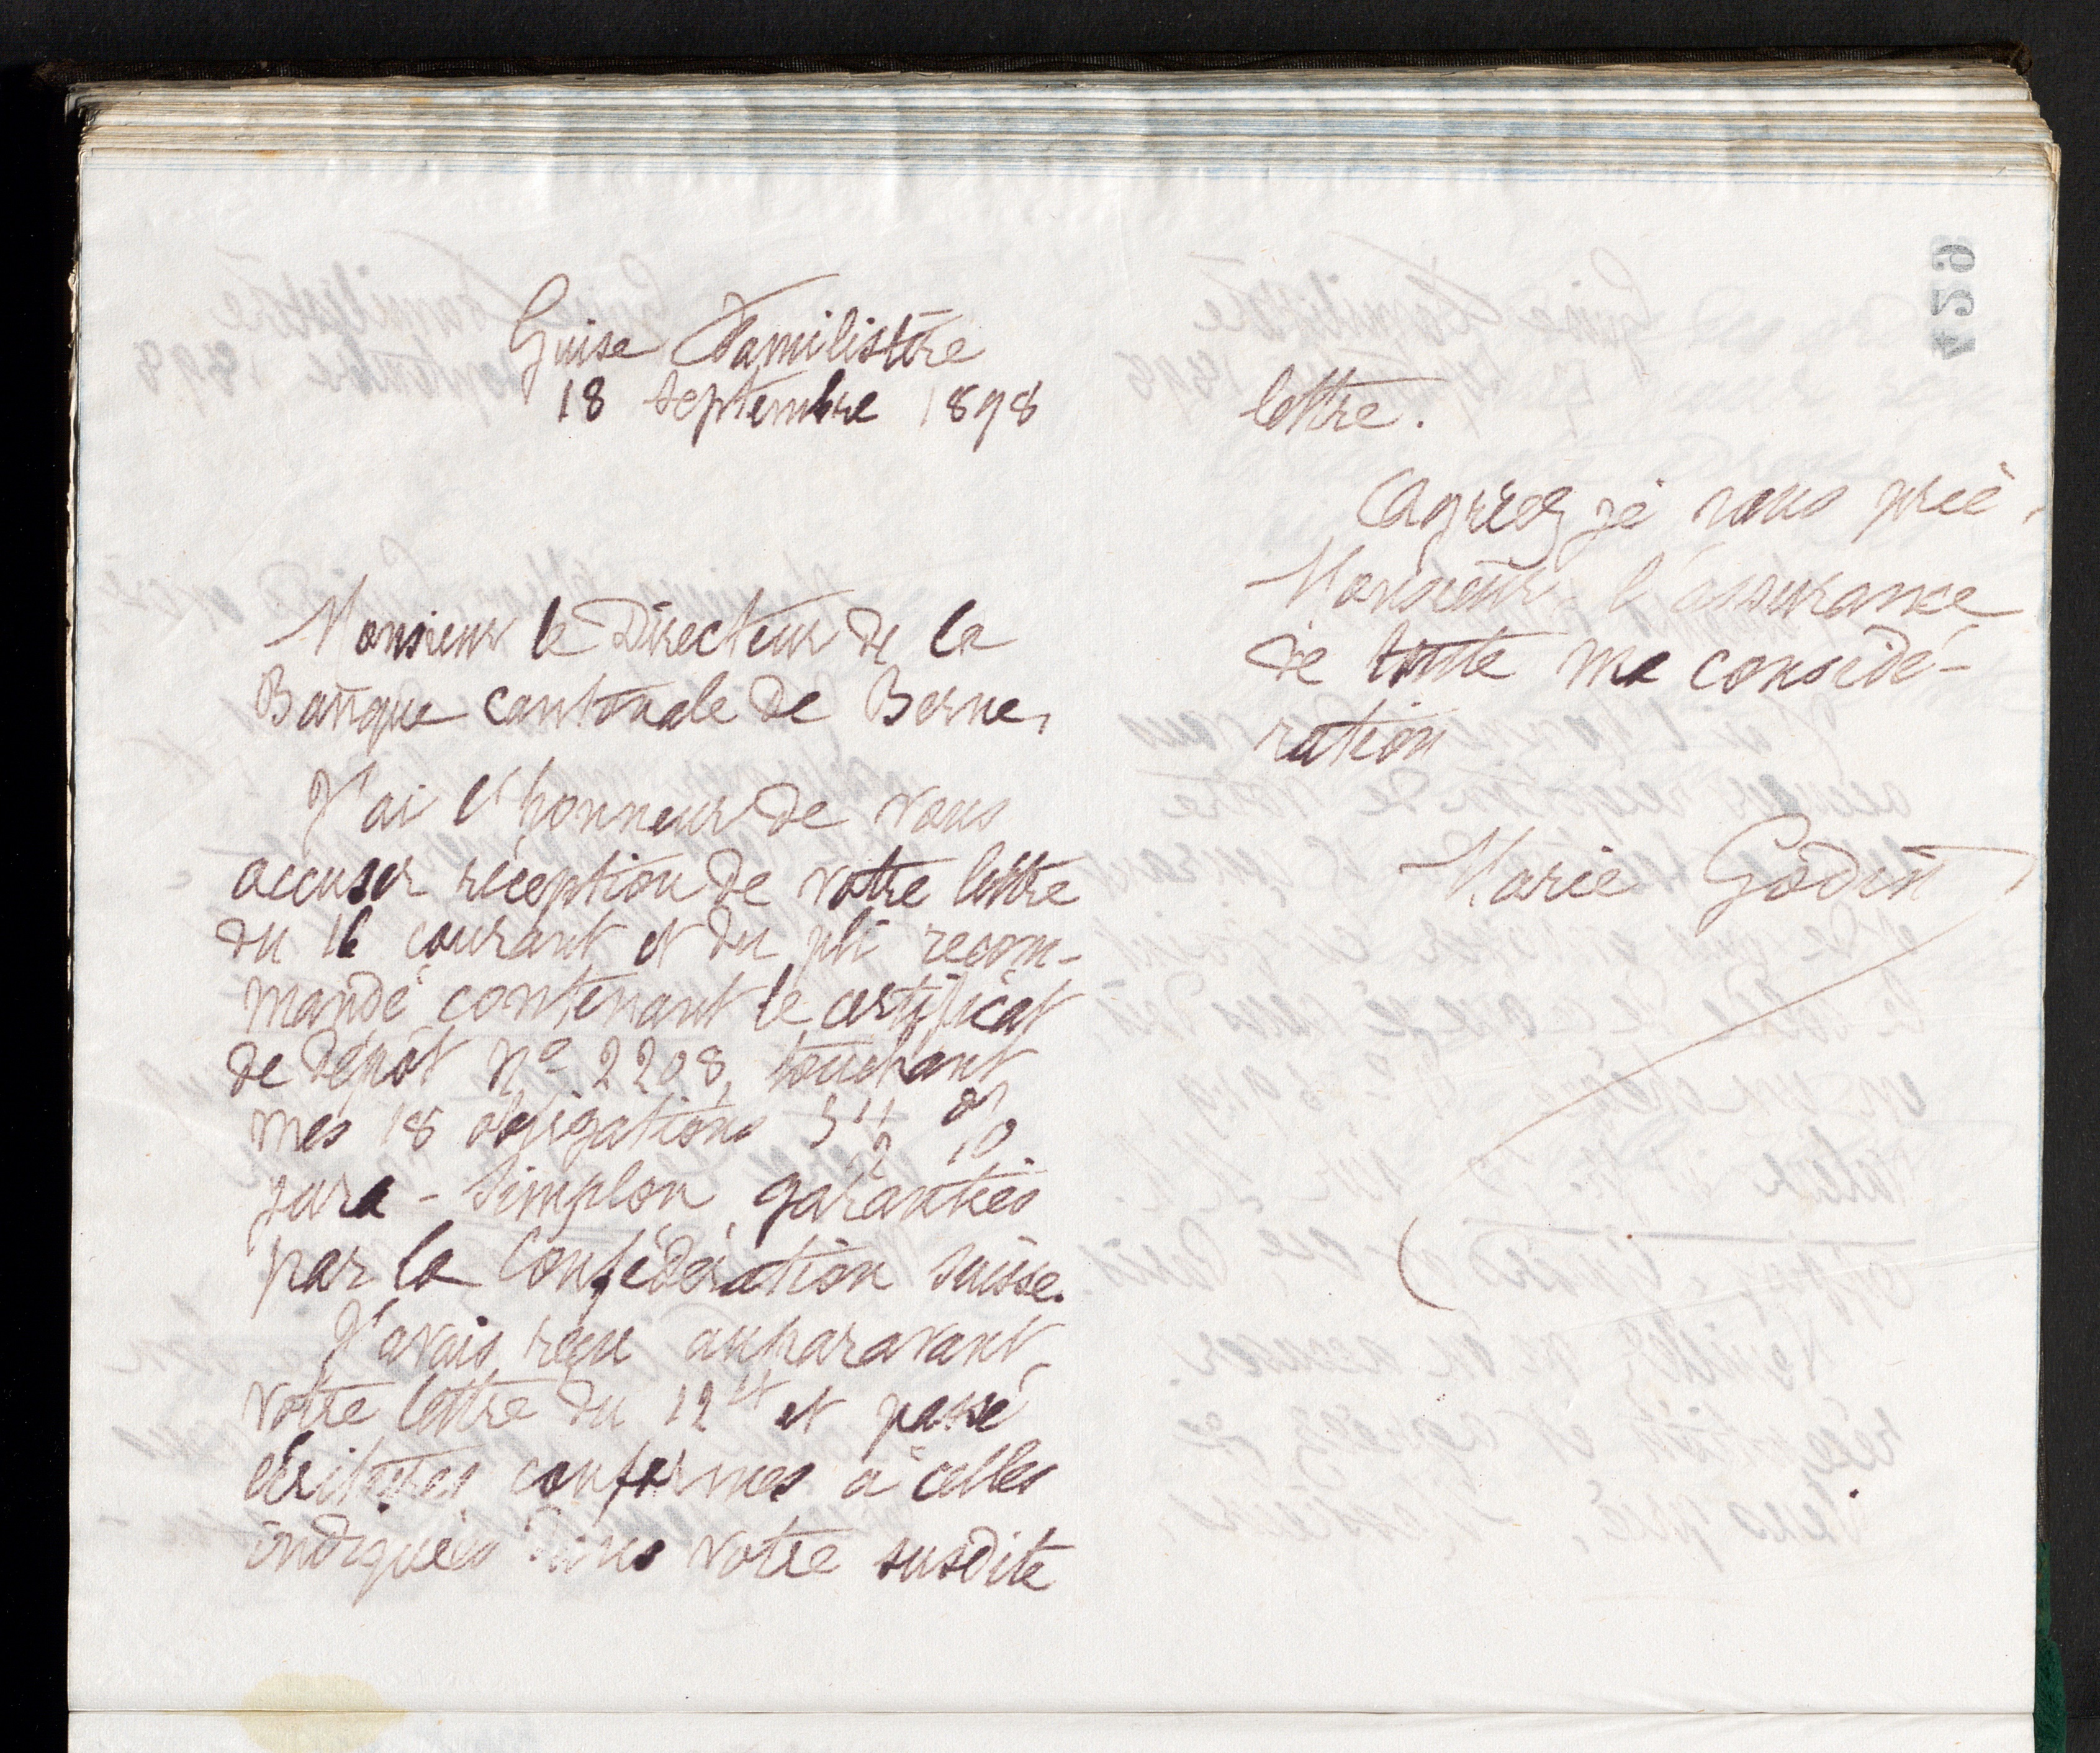 Guise Familistère
18 septembre 1898
Monsieur le Directeur de la
Banque cantonale de Berne,
J'ai l'honneur de vous
accuser réception de votre lettre
du 16 courant et du pli recom-
mandé contenant le certificat
de dépôt nº 2208, touchant
mes 18 obligations 3 1/2 %
Jura-Simplon garanties
par la Confédération suisse.
J'avais reçu auparavant
votre lettre du 12 ct et passé
écritures conformes à celles
indiquées dans votre susdite
lettre.
Agréez je vous prie,
Monsieur, l'assurance
de toute ma considé-
ration
Marie Godin